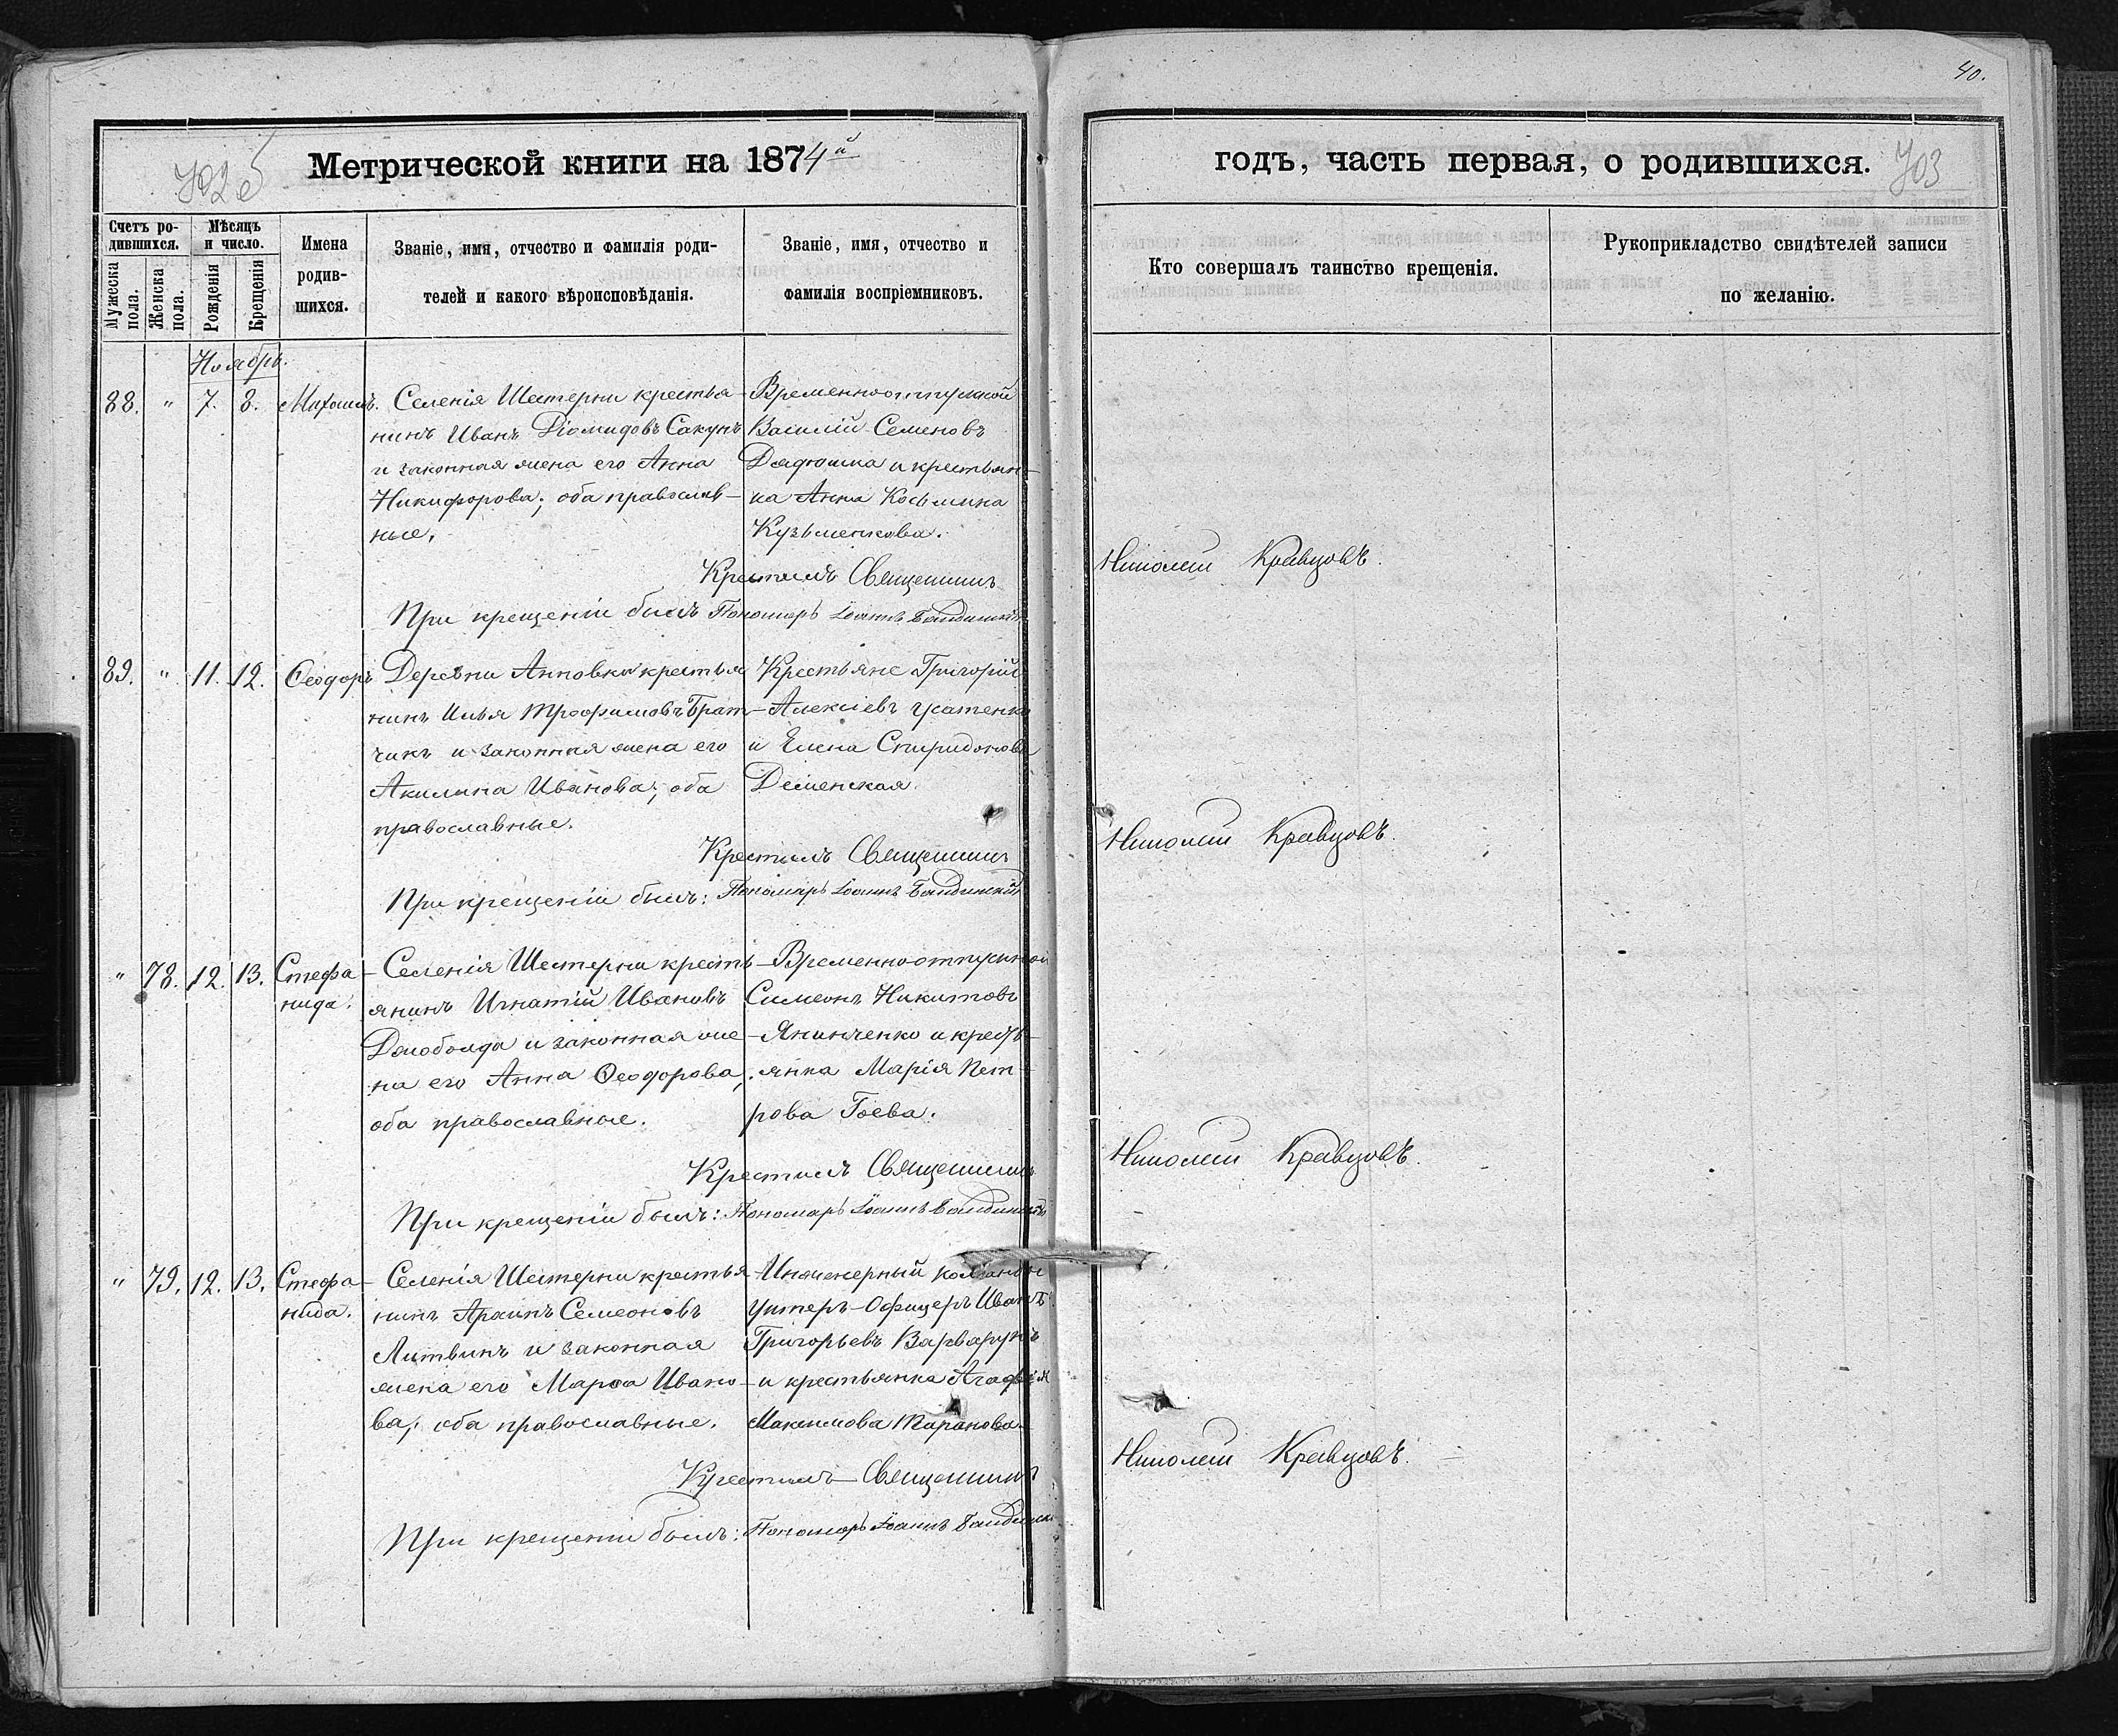 40.
702 б
Метрической книги на 1874й
годъ, часть первая, о родившихся.
703
Счетъ родившихся.
Мужеска пола.
Женска пола.
Мѣсяцъ и число.
Рожденія
Крещенія
Имена родив-
шихся.
Званіе, имя, отчество и фамилія роди-
телей и какого вѣроисповѣданія.
Званіе, имя, отчество и
фамилія воспріемниковъ.
Кто совершалъ таинство крещенія.
Рукоприкладство свидѣтелей записи
по желанію.
Ноябрь.
88. " 7. 8. Михаилъ.
Селенія Шестерни крестья-
нинъ Иванъ Діомидовъ Сакунъ
и законная жена его Анна
Никифорова; оба православ-
ные.
Временноотпускной
Василій Семеновъ
Дядюшка и крестьян-
ка Анна Косьмина
Кузьменкова.
Крестилъ Священникъ
Николай Кравцовъ.
При крещеніи былъ Пономарь Іоаннъ
89. " 11. 12. Ѳеодоръ
Деревни Анновки крестья
нинъ Илья Трофимовъ Брат-
чикъ и законная жена его
Акилина Иванова; оба
православные.
Крестьяне Григорій
Алексіевъ
и Елена Спиридонова
Деменская.
Крестилъ Священникъ
Николай Кравцовъ.
При крещеніи былъ: Пономарь Іоаннъ
" 78. 12. 13. Стефа-
нида.
Селенія Шестерни кресть-
янинъ Игнатій Ивановъ
и законная же-
на его Анна Ѳеодорова;
оба православные.
Временноотпускной
Симеонъ Никитовъ
Якимченко и кресть-
янка Марія Пет-
рова Гоева.
Крестилъ Священникъ
Николай Кравцовъ.
При крещеніи былъ: Пономарь Іоаннъ
" 79. 12. 13. Стефа-
нида.
Селенія Шестерни крестья-
нинъ Архипъ Семеоновъ
Литвинъ и законная
жена его Марѳа Ивано-
ва; оба православные.
Инженерный
Унтеръ-Офицеръ Иванъ
Григорьевъ Варварукъ
и крестьянка Агафія
Максимова Таранова.
Крестилъ Священникъ
Николай Кравцовъ.
При крещеніи былъ: Пономарь Іоаннъ